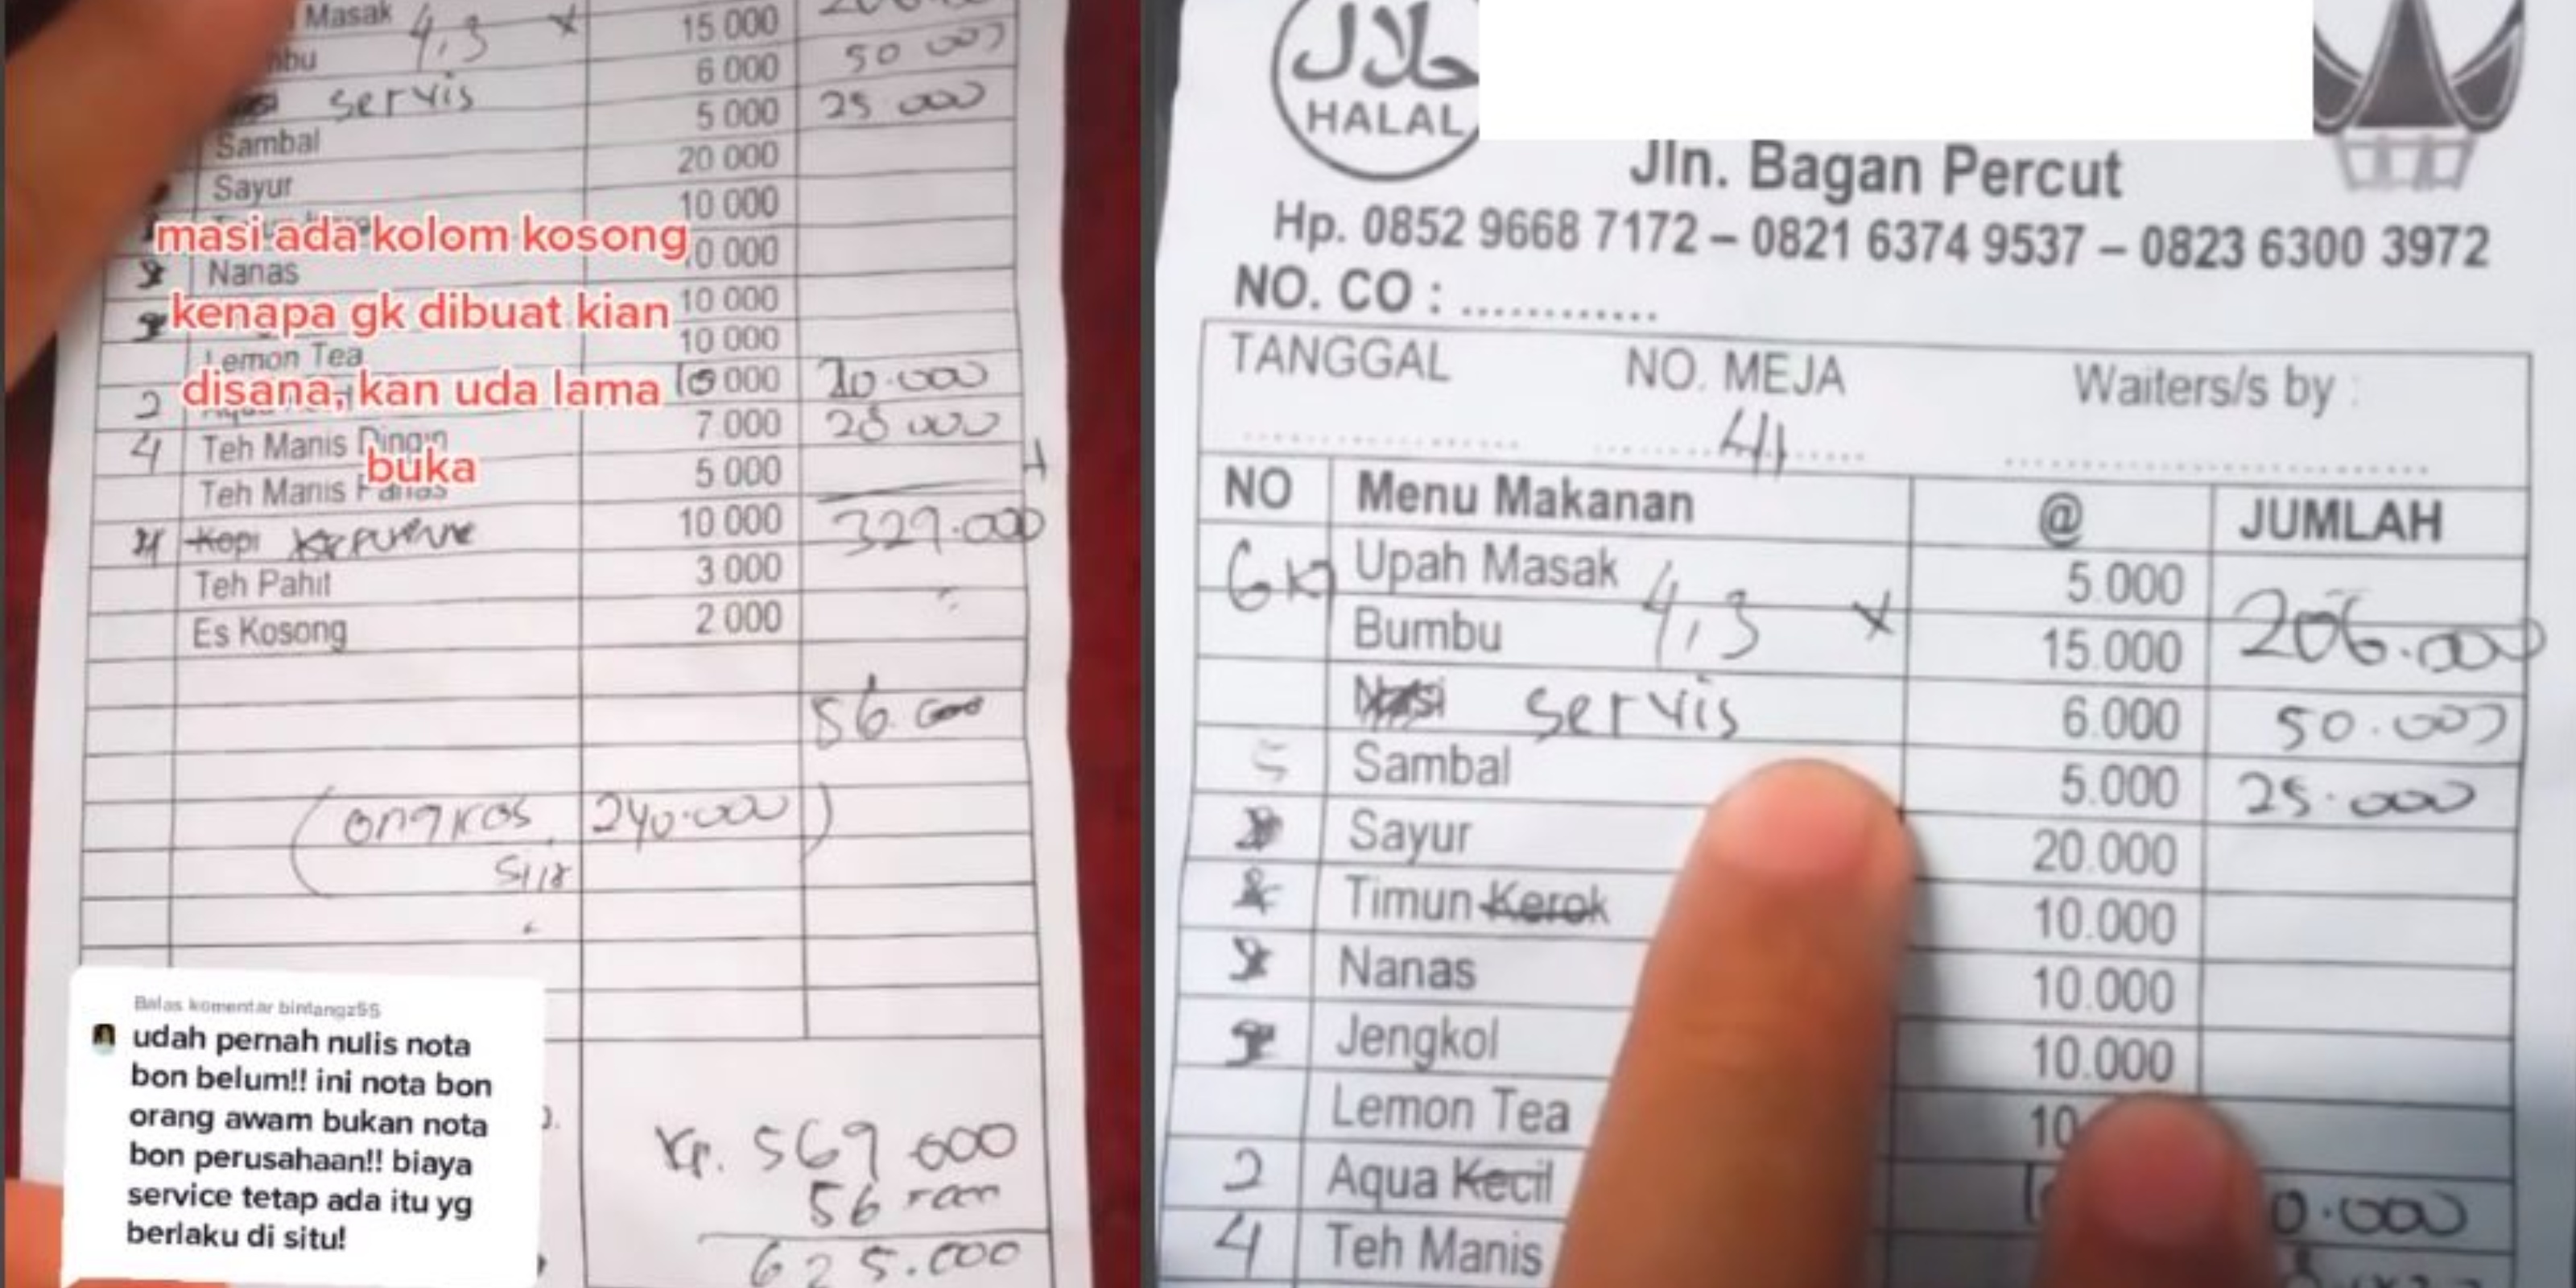 Masak 4,3 x 15 000
6 000 50 000
servis 5 000 25 000
Sambal 20 000
Sayur 10 000
masi ada kolom kosong 0 000
Nanas 10 000
kenapa gk dibuat kian 10 000
Lemon Tea
disana, kan uda lama 10 000 20.000
2
4 Teh Manis Dingin 7 000 28 000
buka
Teh Manis Panas 5 000
Kopi 10 000 329.000
Teh Pahit 3 000
Es Kosong 2 000
56.000
(ongkos 240.000)
Balas komentar bintangz55
udah pernah nulis nota
bon belum!! ini nota bon
orang awam bukan nota
bon perusahaan!! biaya
service tetap ada itu yg
berlaku di situ!
Rp. 569 000
56
625.000
حلال
HALAL
Jln. Bagan Percut
Hp. 0852 9668 7172 – 0821 6374 9537 – 0823 6300 3972
NO. CO : ............
TANGGAL NO. MEJA Waiters/s by :
41
NO Menu Makanan @ JUMLAH
Upah Masak 5.000
Bumbu 4,3 x 15.000 206.000
Nasi servis 6.000 50.000
5 Sambal 5.000 25.000
Sayur 20.000
Timun Kerok 10.000
Nanas 10.000
Jengkol 10.000
Lemon Tea 10
2 Aqua Kecil 0.000
4 Teh Manis